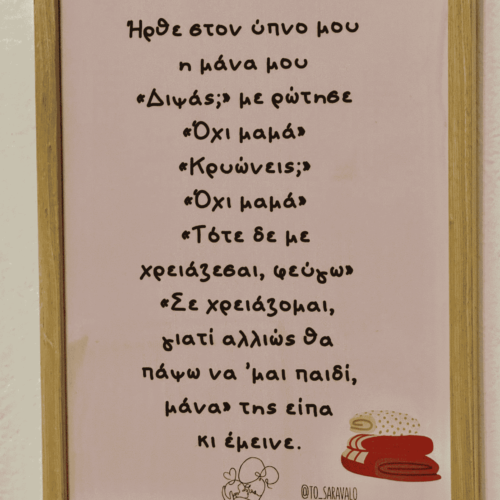 Ήρθε στον ύπνο μου
η μάνα μου
«Διψάς;» με ρώτησε
«Όχι μαμά»
«Κρυώνεις;»
«Όχι μαμά»
«Τότε δε με
χρειάζεσαι, φεύγω»
«Σε χρειάζομαι,
γιατί αλλιώς θα
πάψω να 'μαι παιδί,
μάνα» της είπα
κι έμεινε.
@TO_SARAVALO